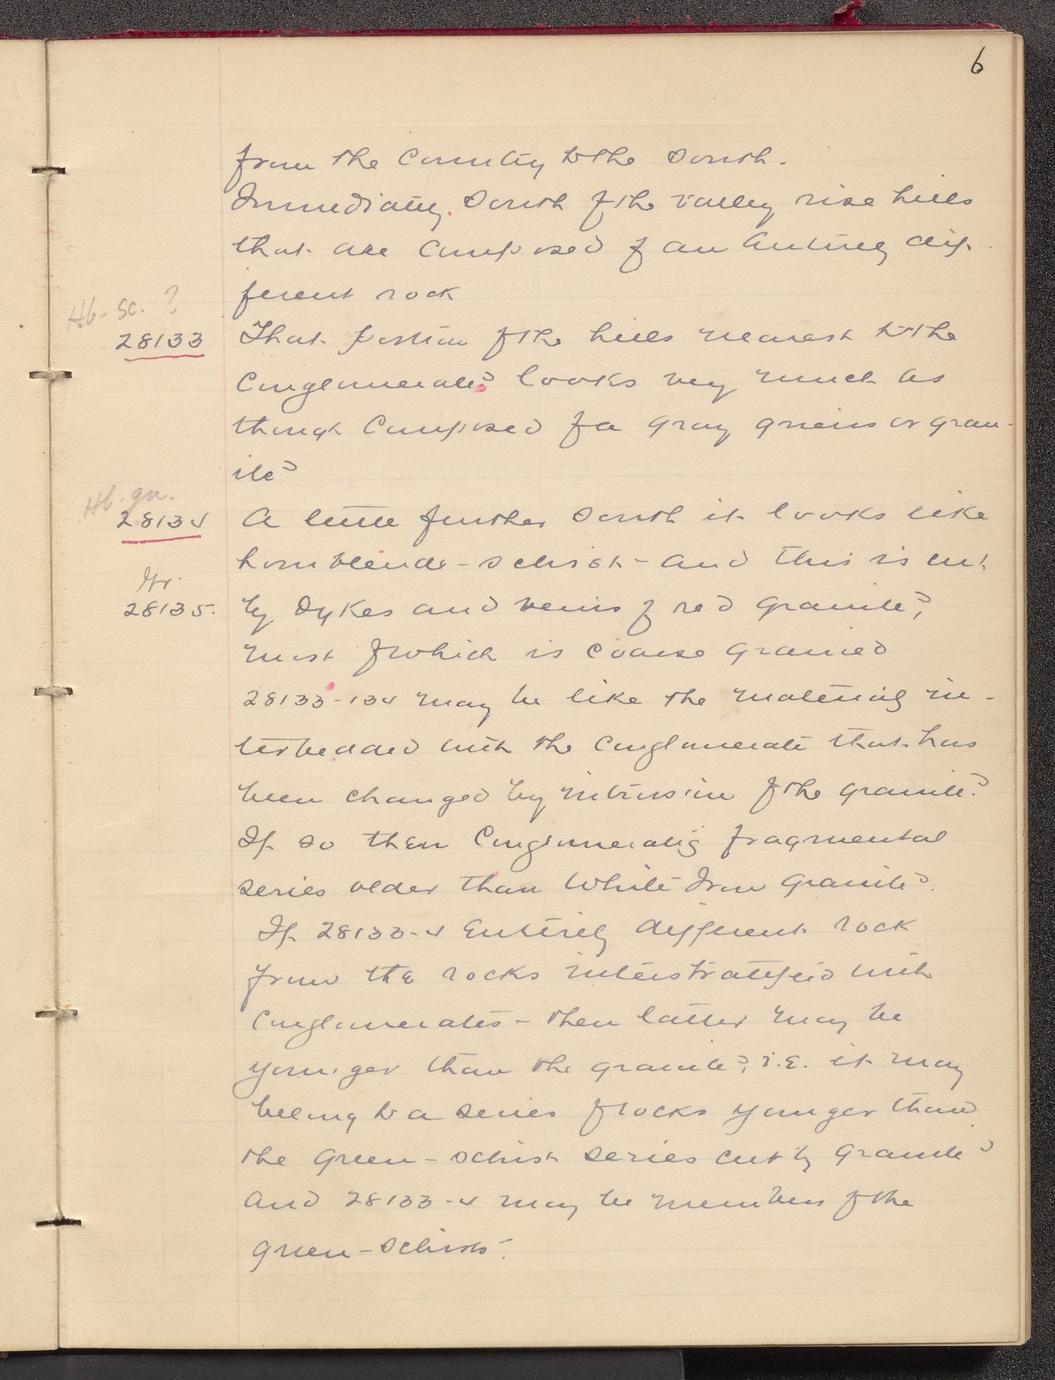 6
from the Country to the South.
Immediately South of the valley rise hills
that are composed of an entirely dif-
ferent rock
Hb-sc. ?
28133 That portion of the hills nearest to the
Conglomerate looks very much as
though composed of a gray gneiss or gran-
ite
Hb. gn.
28134 A little further South it looks like
hornblende-schist- and this is cut
Gr.
28135. by dykes and veins of red granite,
most of which is coarse grained
28133-134 may be like the material in-
terbedded with the conglomerate that has
been changed by intrusion of the granite.
If so then Conglomeratic fragmental
series older than White Iron granite.
If 28133-4 Entirely different rock
from the rocks interstratified with
Conglomerates - then latter may be
younger than the granite, i.e. it may
belong to a series of rocks younger than
the Green-schist series cut by granite
and 28133-4 may be members of the
green-schists.